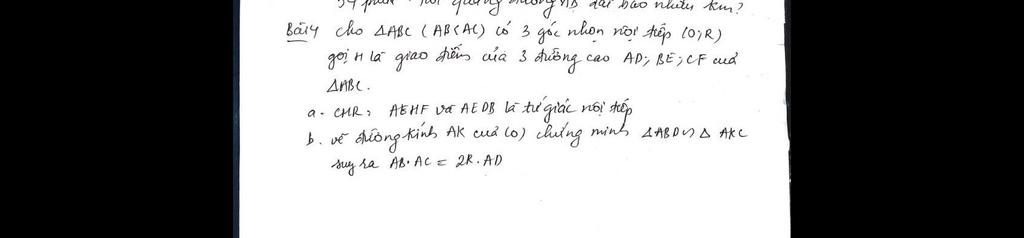 54 phút . hỏi quãng đường AB dài bao nhiêu km?
Bài 4 cho ΔABC (AB<AC) có 3 góc nhọn nội tiếp (O;R)
gọi H là giao điểm của 3 đường cao AD; BE; CF của
ΔABC.
a. CMR: AEHF và AEDB là tứ giác nội tiếp
b. vẽ đường kính AK của (O) chứng minh ΔABD ∽ Δ AKC
suy ra AB.AC = 2R.AD